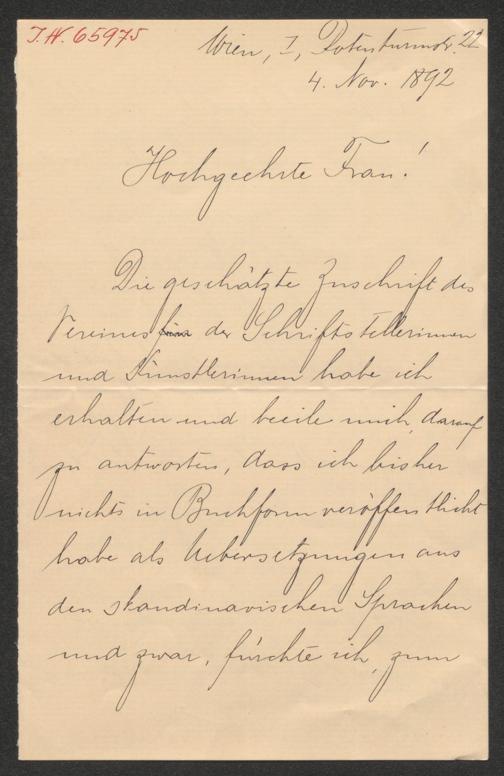 I.N. 65975
Wien, I, Rotenturmstr. 22
4. Nov. 1892
Hochgeehrte Frau!
Die geschätzte Zuschrift des
Vereines der Schriftstellerinnen
und Künstlerinnen habe ich
erhalten und beeile mich, darauf
zu antworten, dass ich bisher
nichts in Buchform veröffentlicht
habe als Uebersetzungen aus
den skandinavischen Sprachen
und zwar, fürchte ich, zum